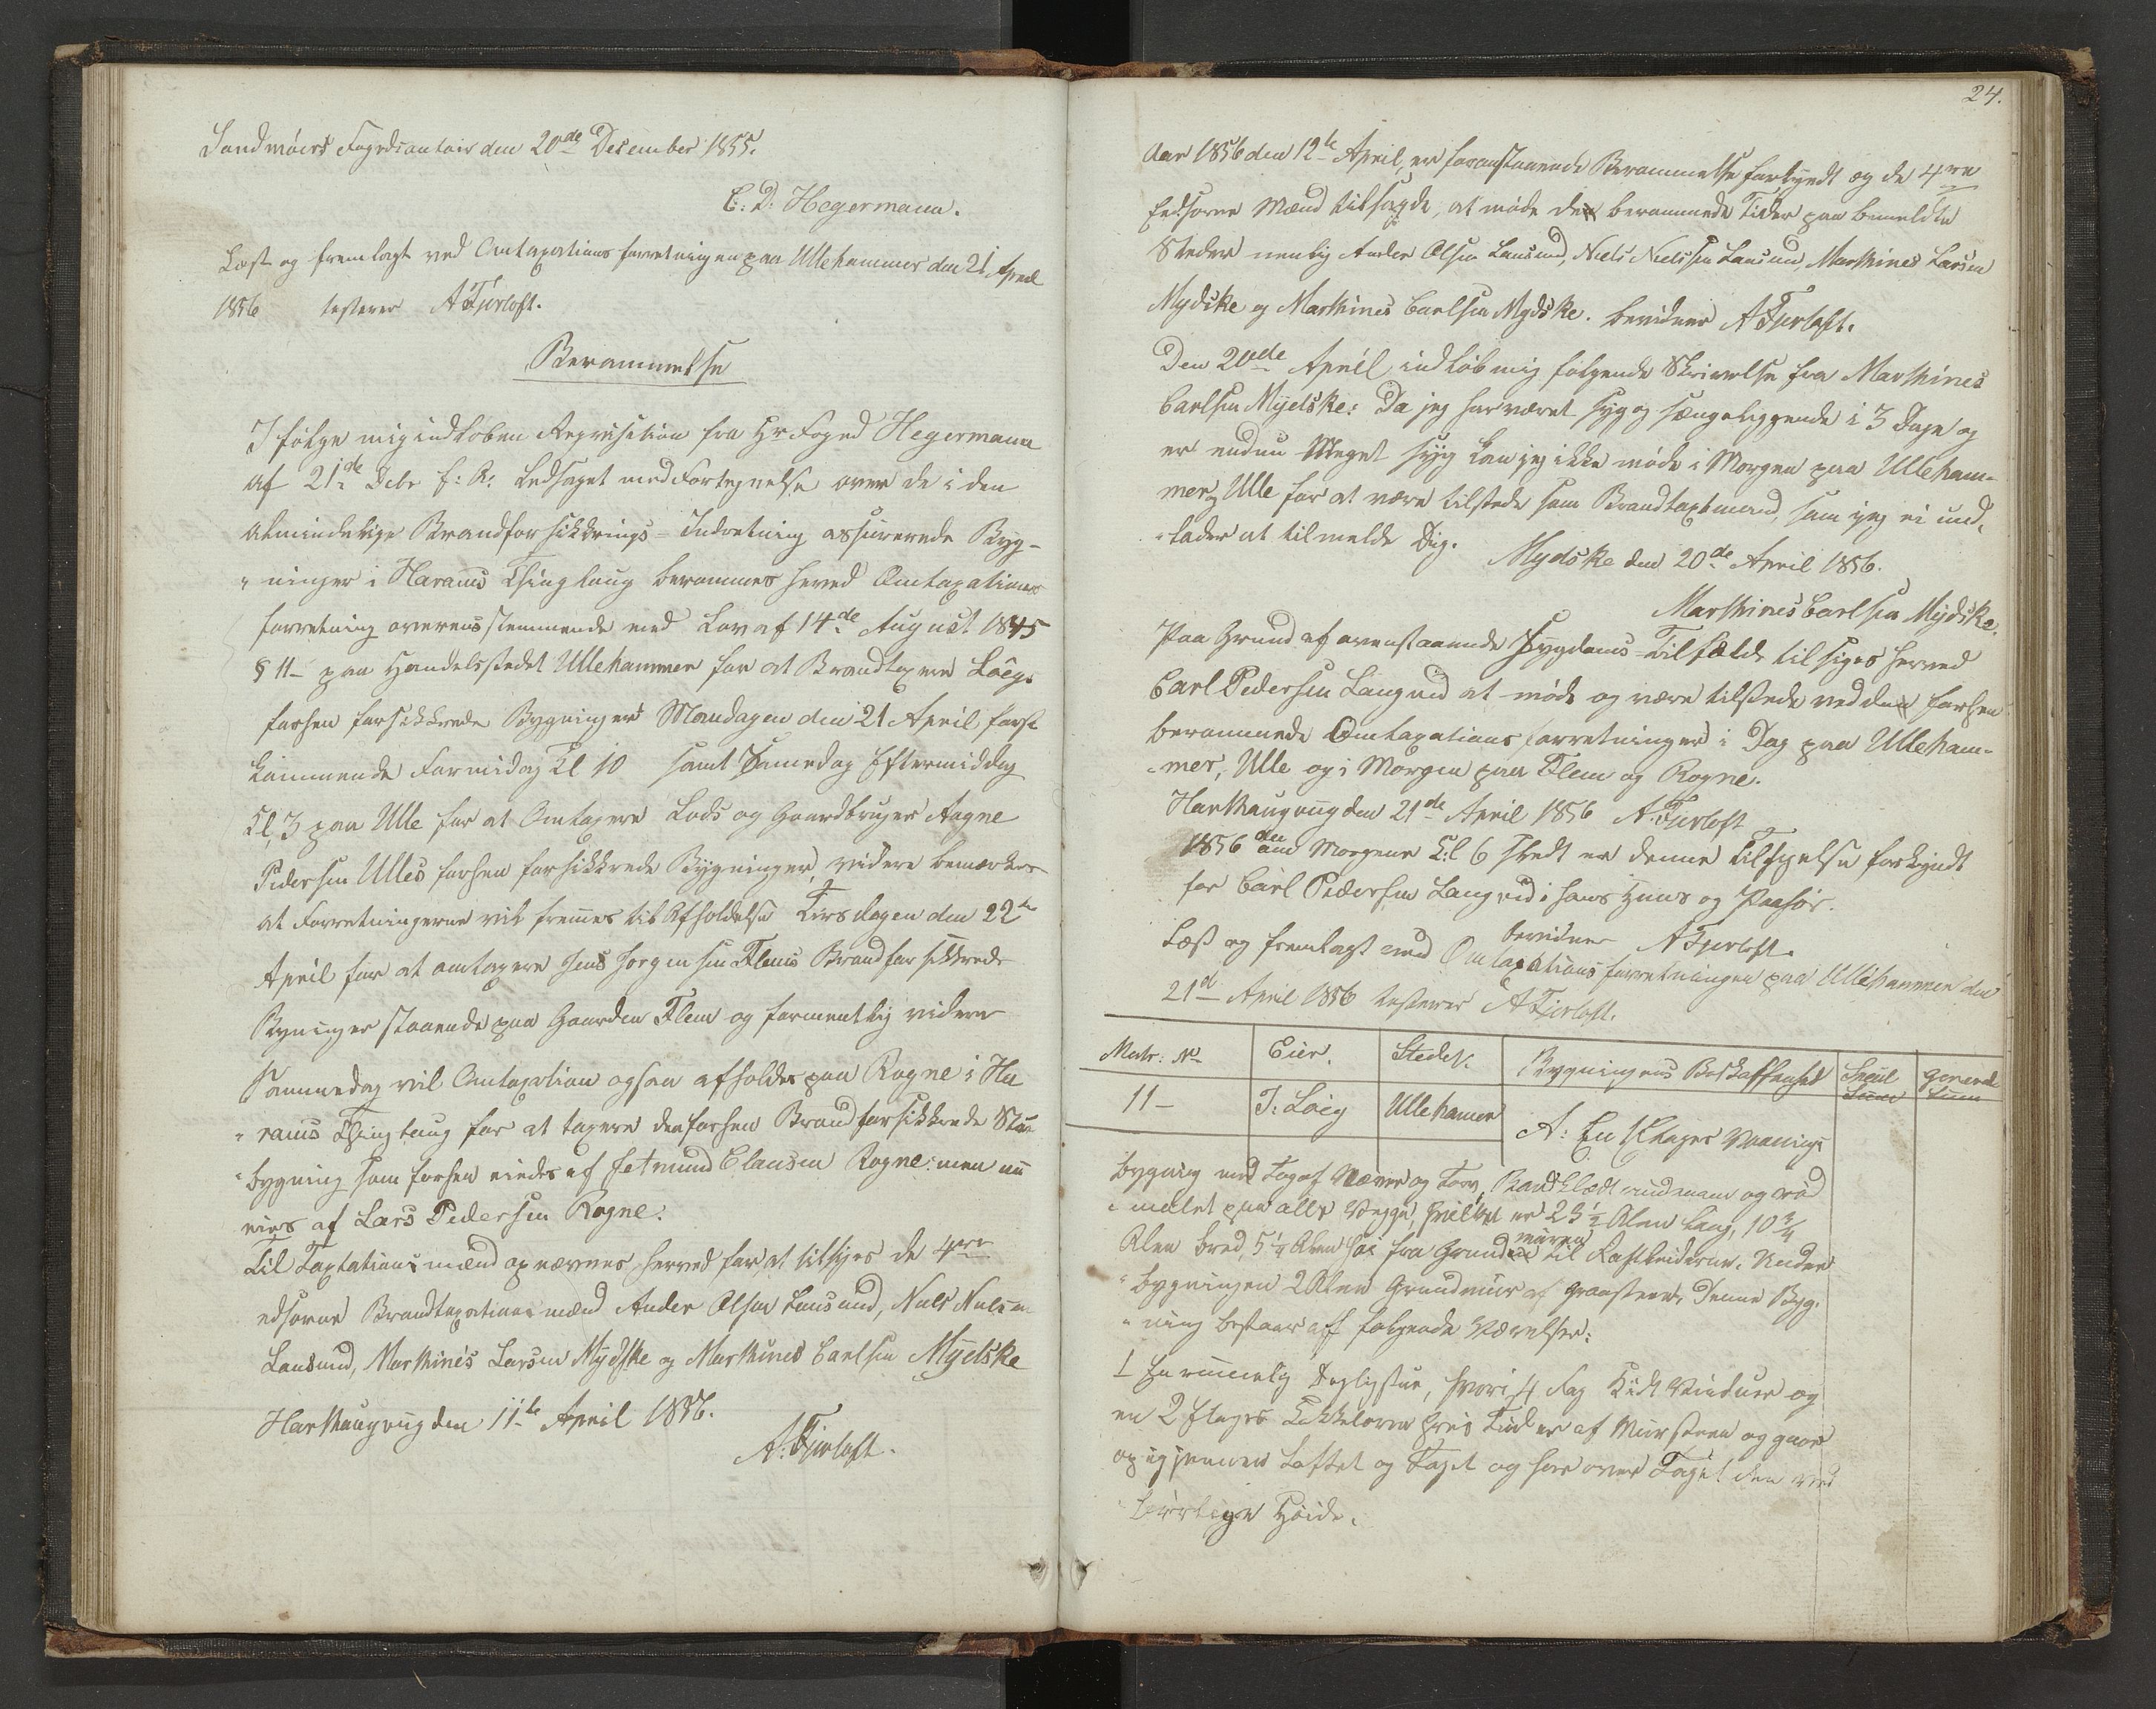 Søndmøers Fogedcontoir den 20de December 1855.
E: D: Hegermann.
Læst og fremlagt ved Omtaxationsforretningen paa Ullehammer den 21 April
1856 testerer A Fjørtoft.
Berammelse
I følge mig indløben Reqvisition fra Hr Foged Hegermann
af 21de Debr f: A: ledsaget med Fortegnelse over de i den
almindelige Brandforsikkrings-Indretning assurerede Byg-
"ninger i Harams Thinglaug berammes herved Omtaxations
forretning overensstemmende med Lov af 14de August 1845
§ 11 - paa Handelsstedet Ullehammer for at Brandtaxere Loëgs
forhen forsikkrede Bygninger Mandagen den 21 April først
kommende Formidag Kl 10 samt Samedag Eftermiddag
Kl, 3 paa Ulle for at Omtaxere Lods og Gaardbruger Aagne
Pedersen Ulles forhen forsikkrede Bygninger, videre bemærkes
at Forretningerne vil fremes til Afholdelse Tirsdagen den 22de
April for at omtaxere Jens Jørgensen Flems Brandforsikkrede
Bygninger staaende paa Gaarden Flem og formentlig videre
Sammedag vil Omtaxation ogsaa afholdes paa Rogne i Ha
"rams Thinglaug for at taxere den forhen Brandforsikkrede Stue
"bygning som forhen eiedes af Jetmund Clausen Rogne: men nu
eies af Lars Pedersen Rogne.
Til Taxtationsmænd opnævnes herved for at tilsiges de 4re
edsorne Brandtaxationsmænd Ander Olsen Lausund, Niels Nielsen
Lausund, Marthines Larsen Mydske og Marthines Carlsen Mydske
Harthaugvug den 11te April 1856.
A: Fjørtoft.
24.
Aar 1856 den 12te April, er foranstaaende Berammelse forkyndt og de 4re
Edsorne Mænd tilsagde, at møde den berammede Tider paa bemeldte
Steder nemlig Ander Olsen Lausund, Niels Nielsen Lausund, Marthines Larsen
Mydske og Marthines Carlsen Mydske. bevidner A Fjørtoft.
Den 20de April indløb mig følgende Skrivelse fra Marthines
Carlsen Mydske: Da jeg har været syg og sængeliggende i 3 Dage og
er endnu Meget syg kan jeg ikke møde i Morgen paa Ulleham-
mer og Ulle for at være tilstede som Brandtaxtmand, som jeg ei und,
"lader at tilmelde Dig.
Mydske den 20de April 1856.
Marthines Carlsen Mydske.
Paa Grund af ovenstaaende Sygdoms-Tilfælde tilsiges herved
Carl Pedersen Langnid at møde og være tilstede ved den forhen
berammede Omtaxationsforretninger i Dag paa Ulleham-
-mer, Ulle og i Morgen paa Flem og Rogne.
Harthaugvug den 21de April 1856 A: Fjørtoft
1856 den Morgenen Kl 6 Slædt er denne Tilsigelse forkyndt
for Carl Pedersen Langnid i hans Huus og Paahør.
bevidner A Fjørtoft.
Læst og fremlagt ved Omtaxationsforretningen paa Ullehammer den
21de April 1856 testerer A Fjørtoft.
Matr: No Eier. Stedet. Bygningens Beskaffenhed Special Summ General Summ
11 - J: Loëg Ullehamer A: En Etages Vaanings
bygning med Tag af Næver og Torv, Bordklædt rundtom og rød
"malet paa alle Vegge, hvilket er 23 1/2 Alen lang, 10 3/4
Alen bred, 5 1/4 Alen høi fra Grundmuren til Raftleiderne. Under
"bygningen 2 Alen Grundmuur af Graasteen. Denne Byg-
"ning bestaar af følgende Værelser:
1 En rummelig Dagligstue, hvori 4 Fag Kidt Vinduer og
en 2 Etages Kakkelovn hvis Rør er af Muursteen og gaar
op igjennem Loftet og Taget og har over Taget den ved
børlige Høide.